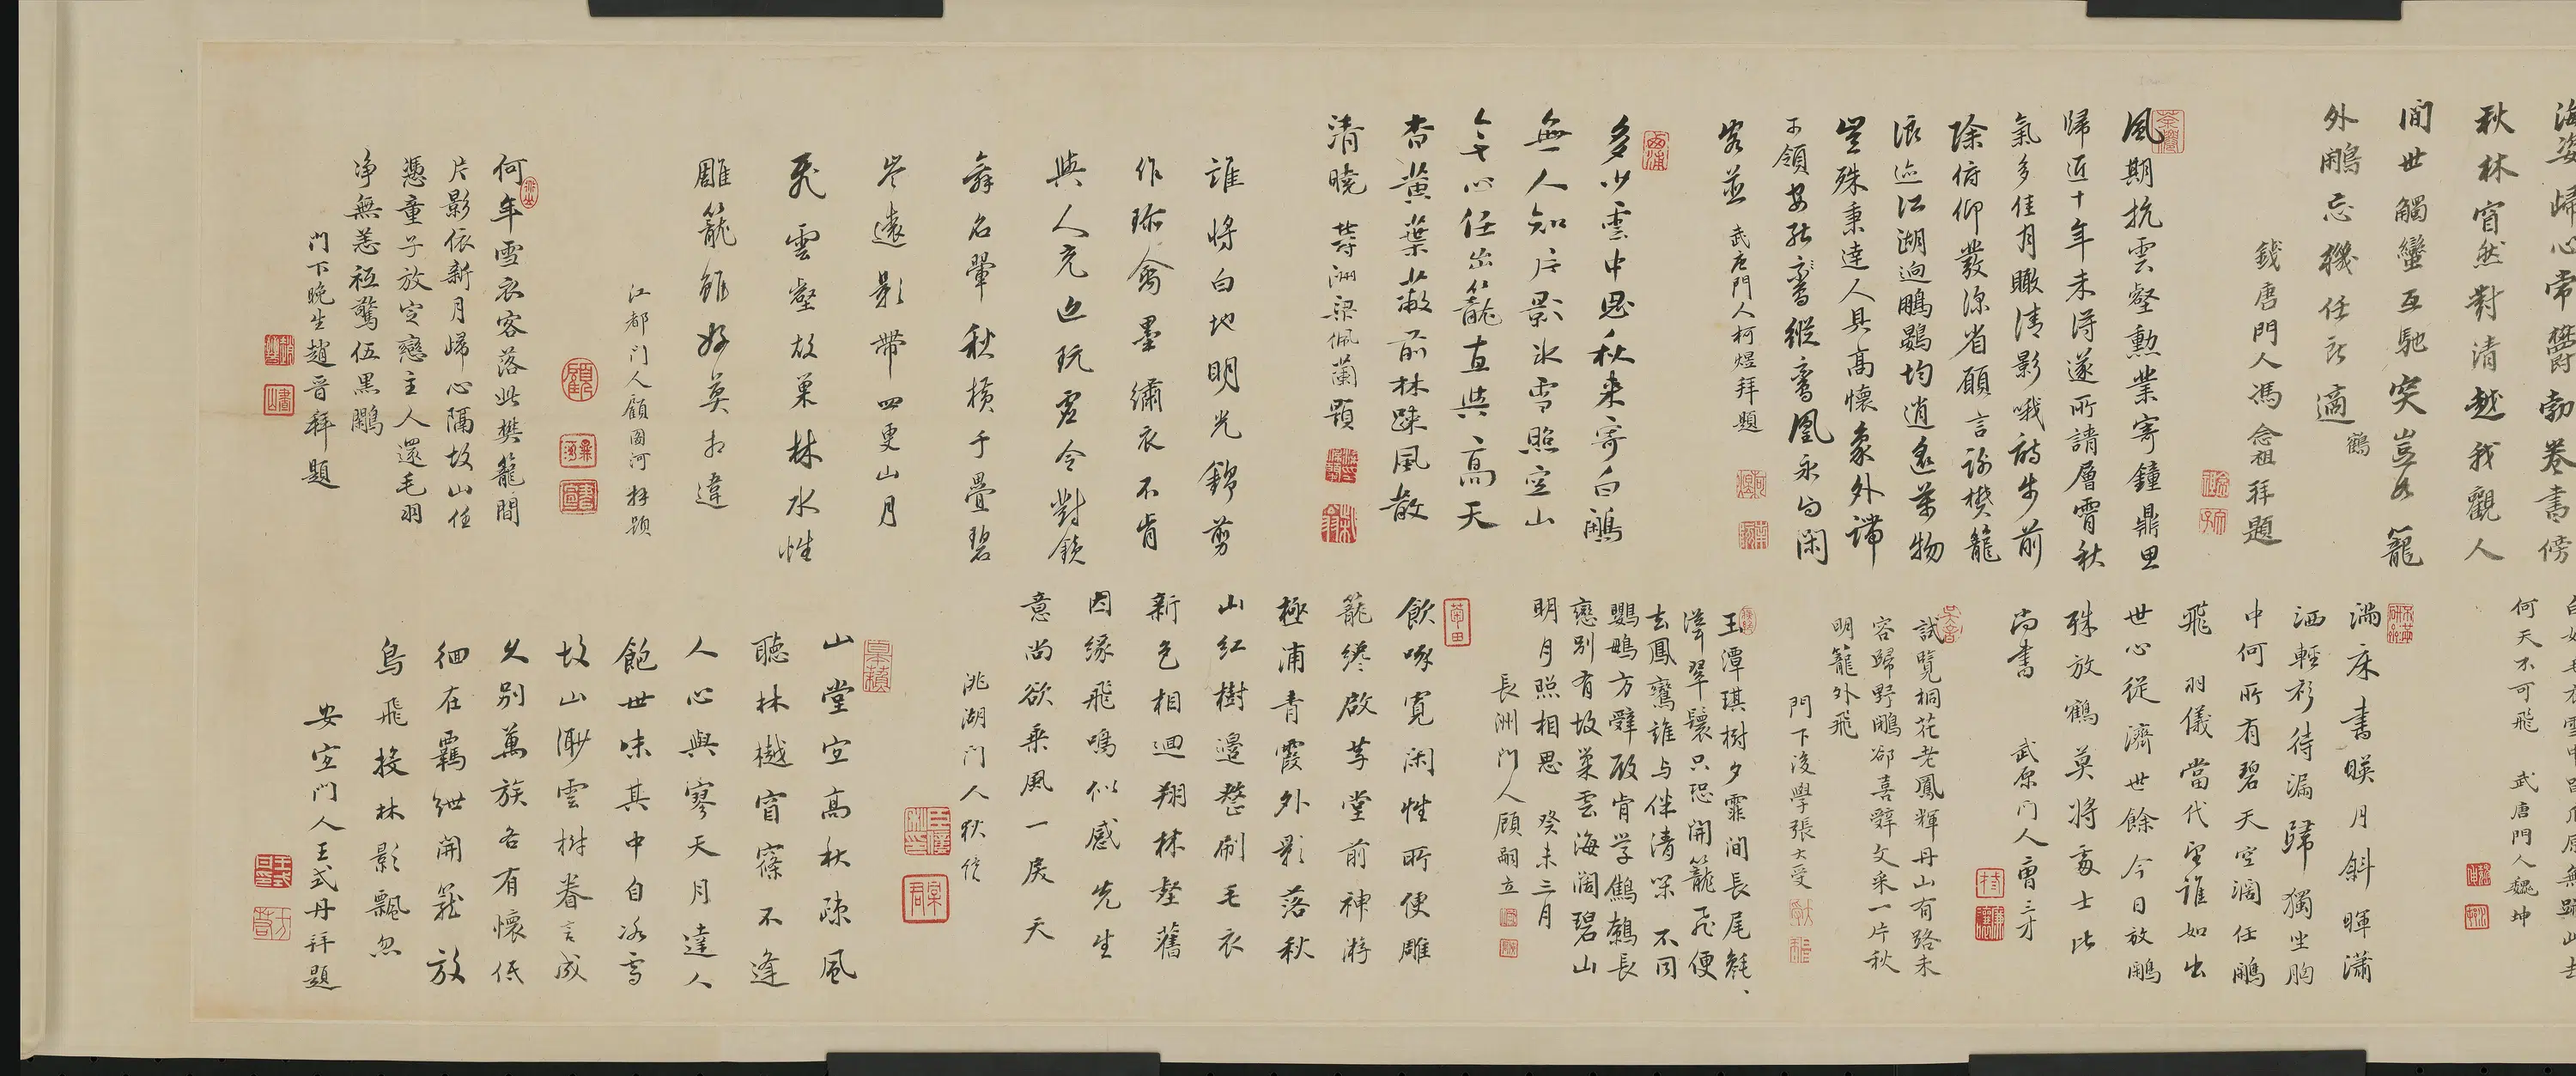 海姿歸心常鬱勃卷書傍
秋林窅然對清越我觀人
間世觸蠻互馳突豈必籠
外鷴忘機任所適 鶴
錢唐門人馮念祖拜題
風期抗雲壑勲業寄鐘鼎思
歸近十年未得遂所請層霄秋
氣多佳月瞰清影哦詩步前
除俯仰發深省願言謝樊籠
浪迹江湖迥鵬鷃均逍遙萬物
豈殊秉達人具高懷象外諦
可領安縱鸞凰永與閑
客並 武唐門人柯煜拜題
多少雲中思秋來寄白鷴
無人知片影冰雪照空山
無心任出籠直與高天
杳黃葉蔽前林疎風散
清曉 梁佩蘭題
誰將白地明光錦剪
作珍禽墨繡衣不肯
與人充近玩還令對鏡
舞名翬秋橫千疊碧
岑遠影帶四更山月
飛雲壑故巢林水性
雕籠雖好莫相違
江都门人顧圖河拜題
何年雪衣客落此樊籠間
片影依新月歸心隔故山任
憑童子放定戀主人還毛羽
净無恙衹驚伍黑鷴
門下晚生趙晉拜題
何天不可飛 武唐門人魏坤
滿床書暎月斜暉瀟
洒輕衫待漏歸獨坐胸
中何所有碧天空濶任鷴
飛 羽儀當代望誰如出
世心從濟世餘今日放鷴
殊放鶴莫將處士比
尚書 武原门人曹三才
試覽桐花老鳳輝丹山有路未
容歸野鷴卻喜辭文采一片秋
明籠外飛
門下後學張大受
玉潭琪樹夕霏間長尾毵、
濘翠鬟只恐開籠飛便
去鳳鸞誰与伴清閑 不同
鸚鵡方辭殿肯学鷦鷯長
戀別有故巢雲海闊碧山
明月照相思 癸未三月
長洲门人顧嗣立
飲啄寬閑性所便雕
籠纔啟草堂前神游
極浦青霞外影落秋
山紅樹邊整刷毛衣
新色相迴翔林壑舊
因緣飛鳴似感先生
意尚欲乘風一戾天
洮湖门人狄億
山堂空高秋疎風
聽林樾窅窱不逢
人心與寥天月達人
飽世味其中自冰雪
故山渺雲樹眷言成
久别萬族各有懷低
徊在羈紲開籠放
鳥飛投林影飄忽
安宜门人王式丹拜題